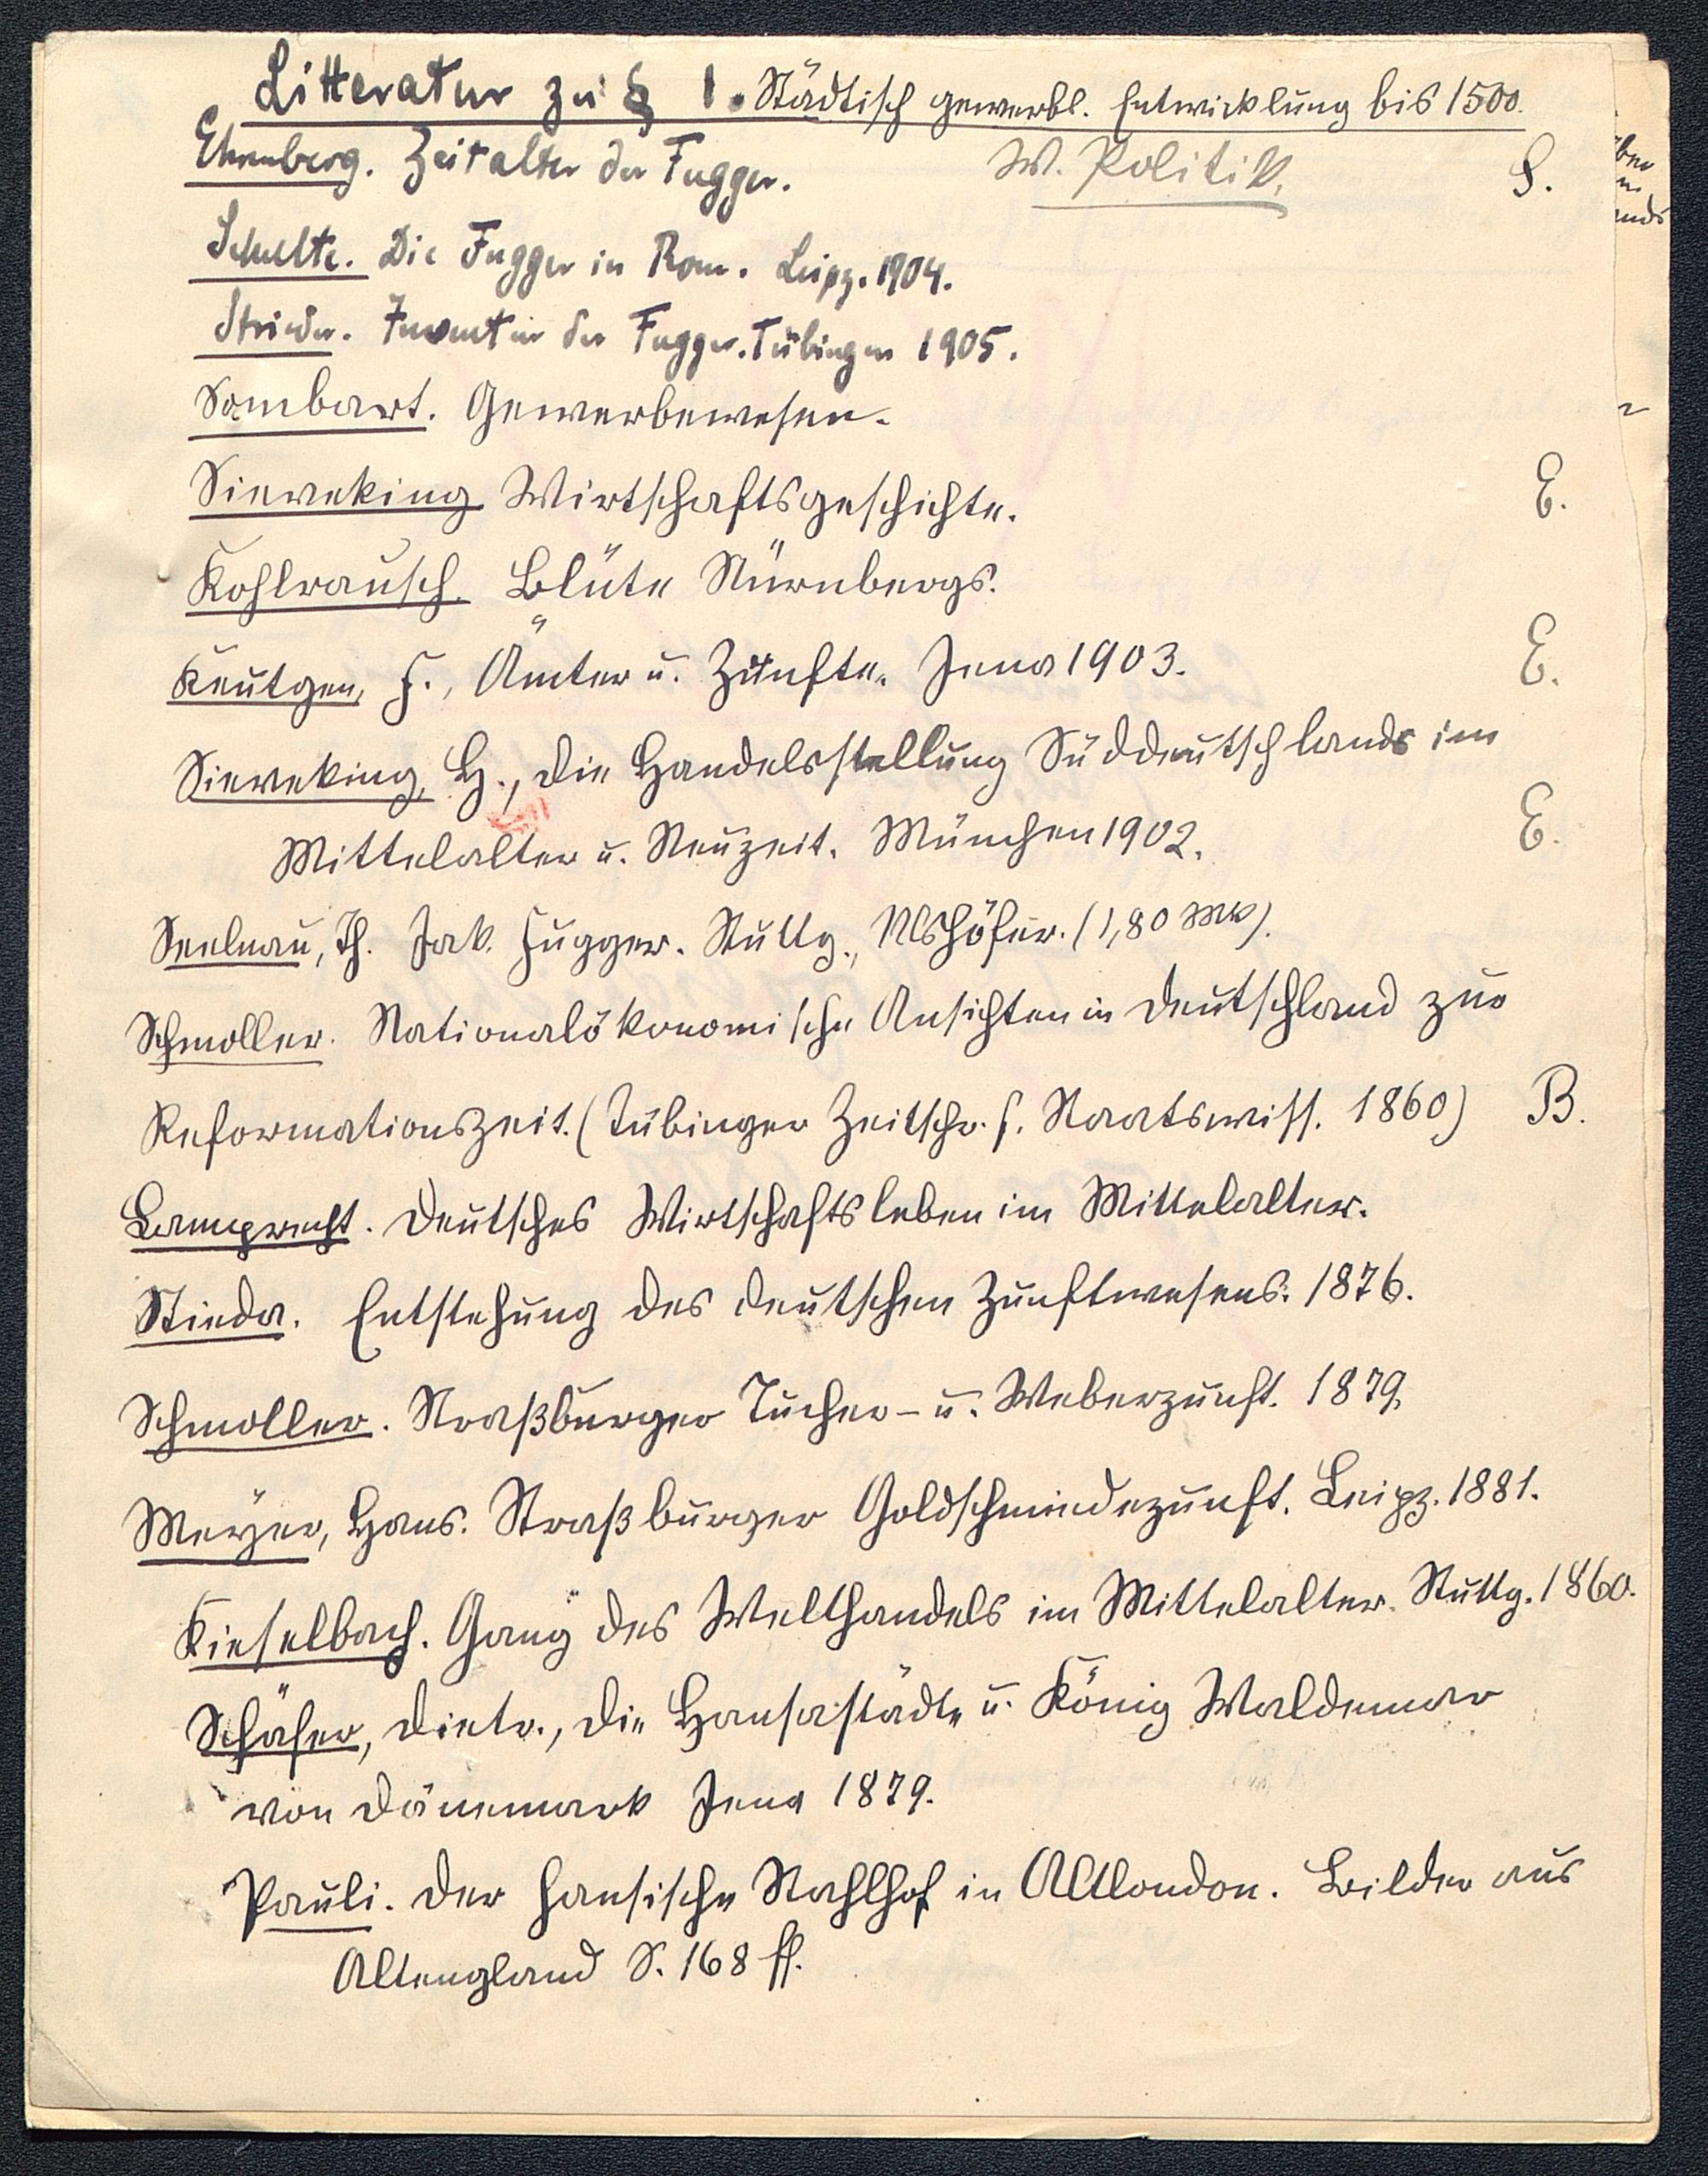 Litteratur zu § 1. Städtisch gewerbl. Entwicklung bis 1500.
Ehrenberg. Zeitalter der Fugger. W. Politik. S.
Schulte. Die Fugger in Rom. Leipz. 1904.
Strieder. Inventur der Fugger. Tübingen 1905.
Sombart. Gewerbewesen.
Sieveking Wirtschaftsgeschichte. E.
Kohlrausch. Blüte Nürnbergs.
Keutgen, F., Ämter u. Zünfte. Jena 1903. E.
Sieveking, H., die Handelsstellung Süddeutschlands im
Mittelalter u. Neuzeit. München 1902. E.
Seelnau, Th. Jak. Fugger. Stuttg., (1,80 Mk).
Schmoller. Nationalökonomische Ansichten in Deutschland zur
Reformationszeit. (Tübinger Zeitschr. f. Staatswiss. 1860) B.
Lamprecht. Deutsches Wirtschaftsleben im Mittelalter.
Stieda. Entstehung des deutschen Zunftwesens. 1876.
Schmoller. Straßburger Tucher- u. Weberzunft. 1879.
Meyer, Hans. Straßburger Goldschmiedezunft. Leipz. 1881.
Kieselbach. Gang des Welthandels im Mittelalter. Stuttg. 1860.
Schäfer, Dietr., die Hansastädte u. König Waldemar
von Dänemark Jena 1879.
Pauli. Der hansische Stahlhof in Altlondon. Bilder aus
Altengland S. 168 ff.